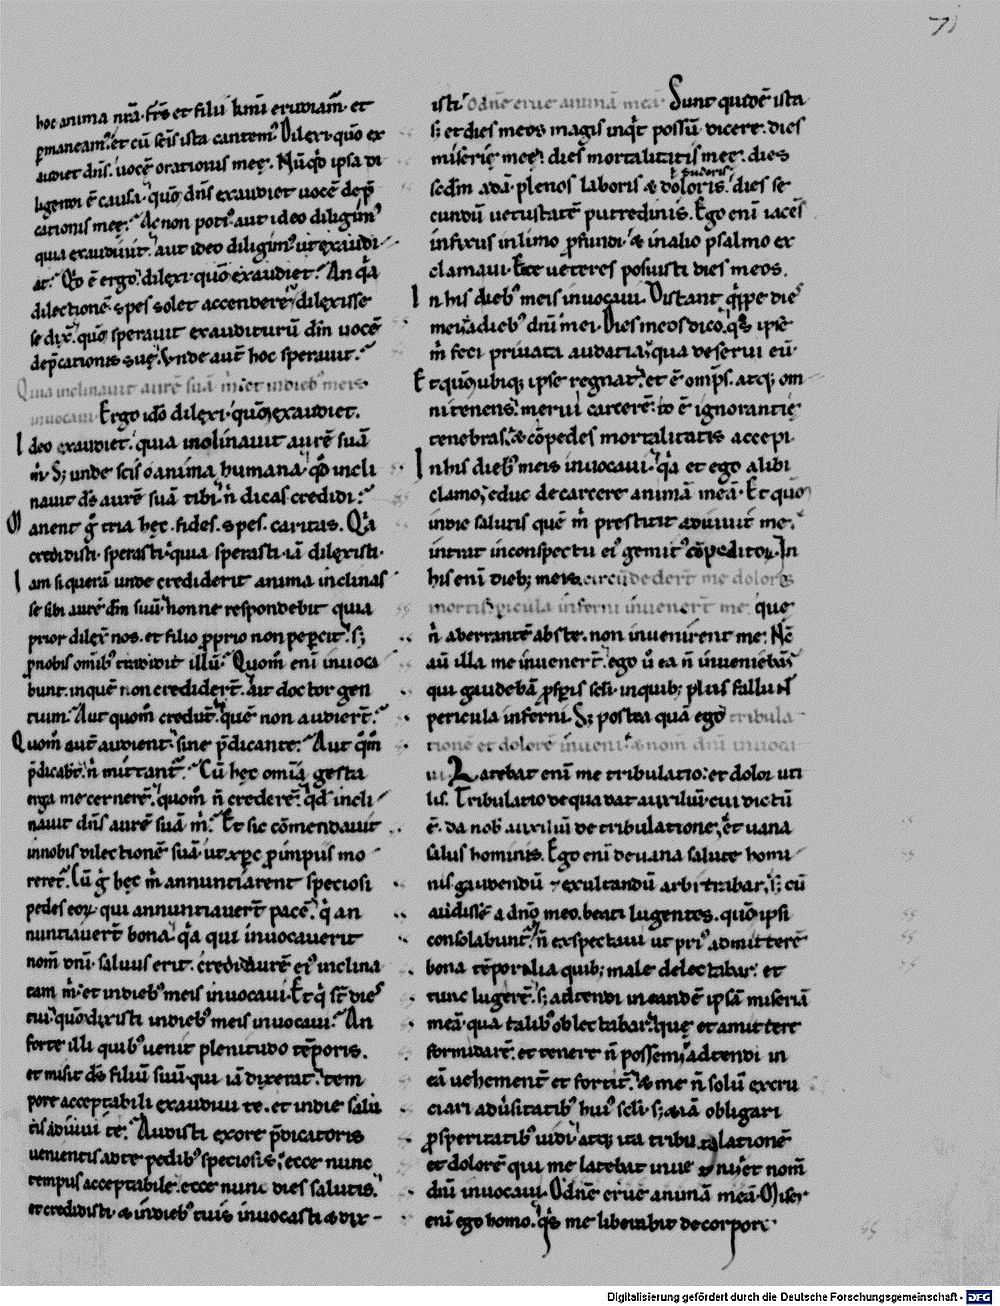 71
hoc anima nrā. frs̄ et filii hmū erudiam̄. et
ꝑmaneam᷒. et cū scīs ista cantem᷒. Dilexi. quō ex
audiet dn̄s. uocē orationis meę. Nūqd ipsa di
ligendi ē causa. quō dn̄s exaudiet uocē dep̄
cationis meę. Ac non poti᷒ aut ideo diligim᷒
quia exaudiuit. aut ideo diligim᷒ ut exaudi
at. Qd ē ergo. dilexi. quō exaudiet. An qa
dilectionē. spes solet accendere. dilexisse
se dix. quō sperauit exauditurū dm̄ uocē
dep̄cationis suę. Vnde aut̄ hoc sperauit.
Quia inclinauit aurē suā m. et in dieb᷒ meis
inuocaui. Ergo idō dilexi. quō exaudiet.
Ideo exaudiet. quia inclinauit aurē suā
m. S; unde scis o anima humana qd incli
nauit ds̄ aurē suā tibi. n̄ dicas credidi.
Manent g tria hęc. fides. spes. caritas. Qa
credidisti. sperasti. quia sperasti. iā dilexisti.
Iam si querā unde crediderit anima inclinas
se sibi aurē dm̄ suū. nonne respondebit quia
prior dilex nos. et filio ꝓprio non peꝑcit. s;
ꝓ nobis omīb᷒ tradidit illū. Quom̄ enī inuoca
bunt. in quē non crediderT̄. Ait doctor gen
tium. Aut quom̄ credut̄. quē non audiert̄.
Quom̄ aut̄ audient. sine p̄dicante. Aut qm̄
p̄dicabt̄. n mittant᷒. Cū hęc omīa gesta
erga me cernerē. quom̄ n̄ crederē. qd incli
nauit dn̄s aurē suā m. Et sic cōmendauit
in nobis dilectionē suā. ut xp̄c ꝓ impiis mo
reret᷒. Cū g hęc m annuntiarent speciosi
pedes eoꝝ qui annuntiauert̄ pacē. q an
nuntiauert̄ bona. qa qui inuocauerit
nom̄ dn̄i. saluus erit. credidi aurē ei᷒ inclina
tam m. et in dieb᷒ meis inuocaui. Et q st̄ dies
tui. quō dixisti in dieb᷒ meis inuocaui. An
forte illi quib᷒ uenit plenitudo tēporis.
et misit ds̄ filiū suū. qui iā dixerat. tem
pore acceptabili exaudiui te. et in die salu
tis adiuui te. Audisti ex ore p̄dicatoris
uenientis ad te pedib᷒ speciosis. ecce nunc
tempus acceptabile. ecce nunc dies salutis.
et credidisti. & in dieb᷒ tuis inuocasti & dix
isti. O dn̄e erue animā meā. Sunt quidē ista
s; et dies meos magis inqt possū dicere. dies
miserię meę. dies mortalitatis meę. dies
scdm̄ adā. plenos laboris & doloris. dies se
l sudoris
cundū uetustatē putredinis. Ego enī iacēs
infixus in limo ꝓfundi. & in alio psalmo ex
clamaui. Ecce ueteres posuisti dies meos.
In his dieb᷒ meis inuocaui. Distant qppe dies
mei. a dieb᷒ dn̄i mei. Dies meos dico. qs ipse
m feci priuata audatia. qua deserui eū.
Et quō ubiq; ipse regnat. et ē omps̄. atq; om
nitenens. merui carcerē. id ē ignorantię
tenebras. & cōpedes mortalitatis accepi.
In his dieb᷒ meis inuocaui. qa et ego alibi
clamo. educ de carcere animā meā. Et quō
in die salutis quē m prestitit adiuuit me.
intrat in conspectu ei᷒ gemit᷒ cōpeditoꝝ. In
his enī dieb; meis. circūdedert̄ me dolores
mortis. pericula inferni inuenert̄ me. que
n aberrantē abs te. non inuenirent me. Nc̄
aū illa me inuenert̄. ego u ea n̄ inueniebā.
qui gaudebā ꝓspīs scli. in quib; plus fallunt
pericula inferni. S; postea quā ego tribula
tionē et dolorē inueni. & nom̄ dn̄i inuoca
ui. Latebat enī me tribulatio. et dolor uti
lis. Tribulatio de qua dat auxiliū. cui dictū
ē. da nob᷒ auxiliū de tribulatione. et uana
salus hominis. Ego enī de uana salute homi
nis gaudendū & exultandū arbitrabar. s; cū
audissē a dn̄o meo. beati lugentes. quō ipsi
consolabunt᷒. n̄ exspectaui ut pri᷒ admitterē
bona tēporalia quib; male delectabar. et
tunc lugerē. s; adtendi in eandē ipsā miseriā
meā. qua talib᷒ oblectabar. que et amittere
formidarē. et tenere n̄ possem. adtendi in
eā uehement̄ et fortit̄. & me n̄ solū excru
ciari aduersitatib᷒ hui᷒ scli. s; & iā obligari
ꝓsperitatib᷒ uidi. atq; ita tribulationē
et dolorē qui me latebat inueni et nom̄
dn̄i inuocaui. O dn̄e erue animā meā. Miser
enī ego homo. qs me liberabit de corpore
Digitalisierung gefördert durch die Deutsche Forschungsgemeinschaft - DFG